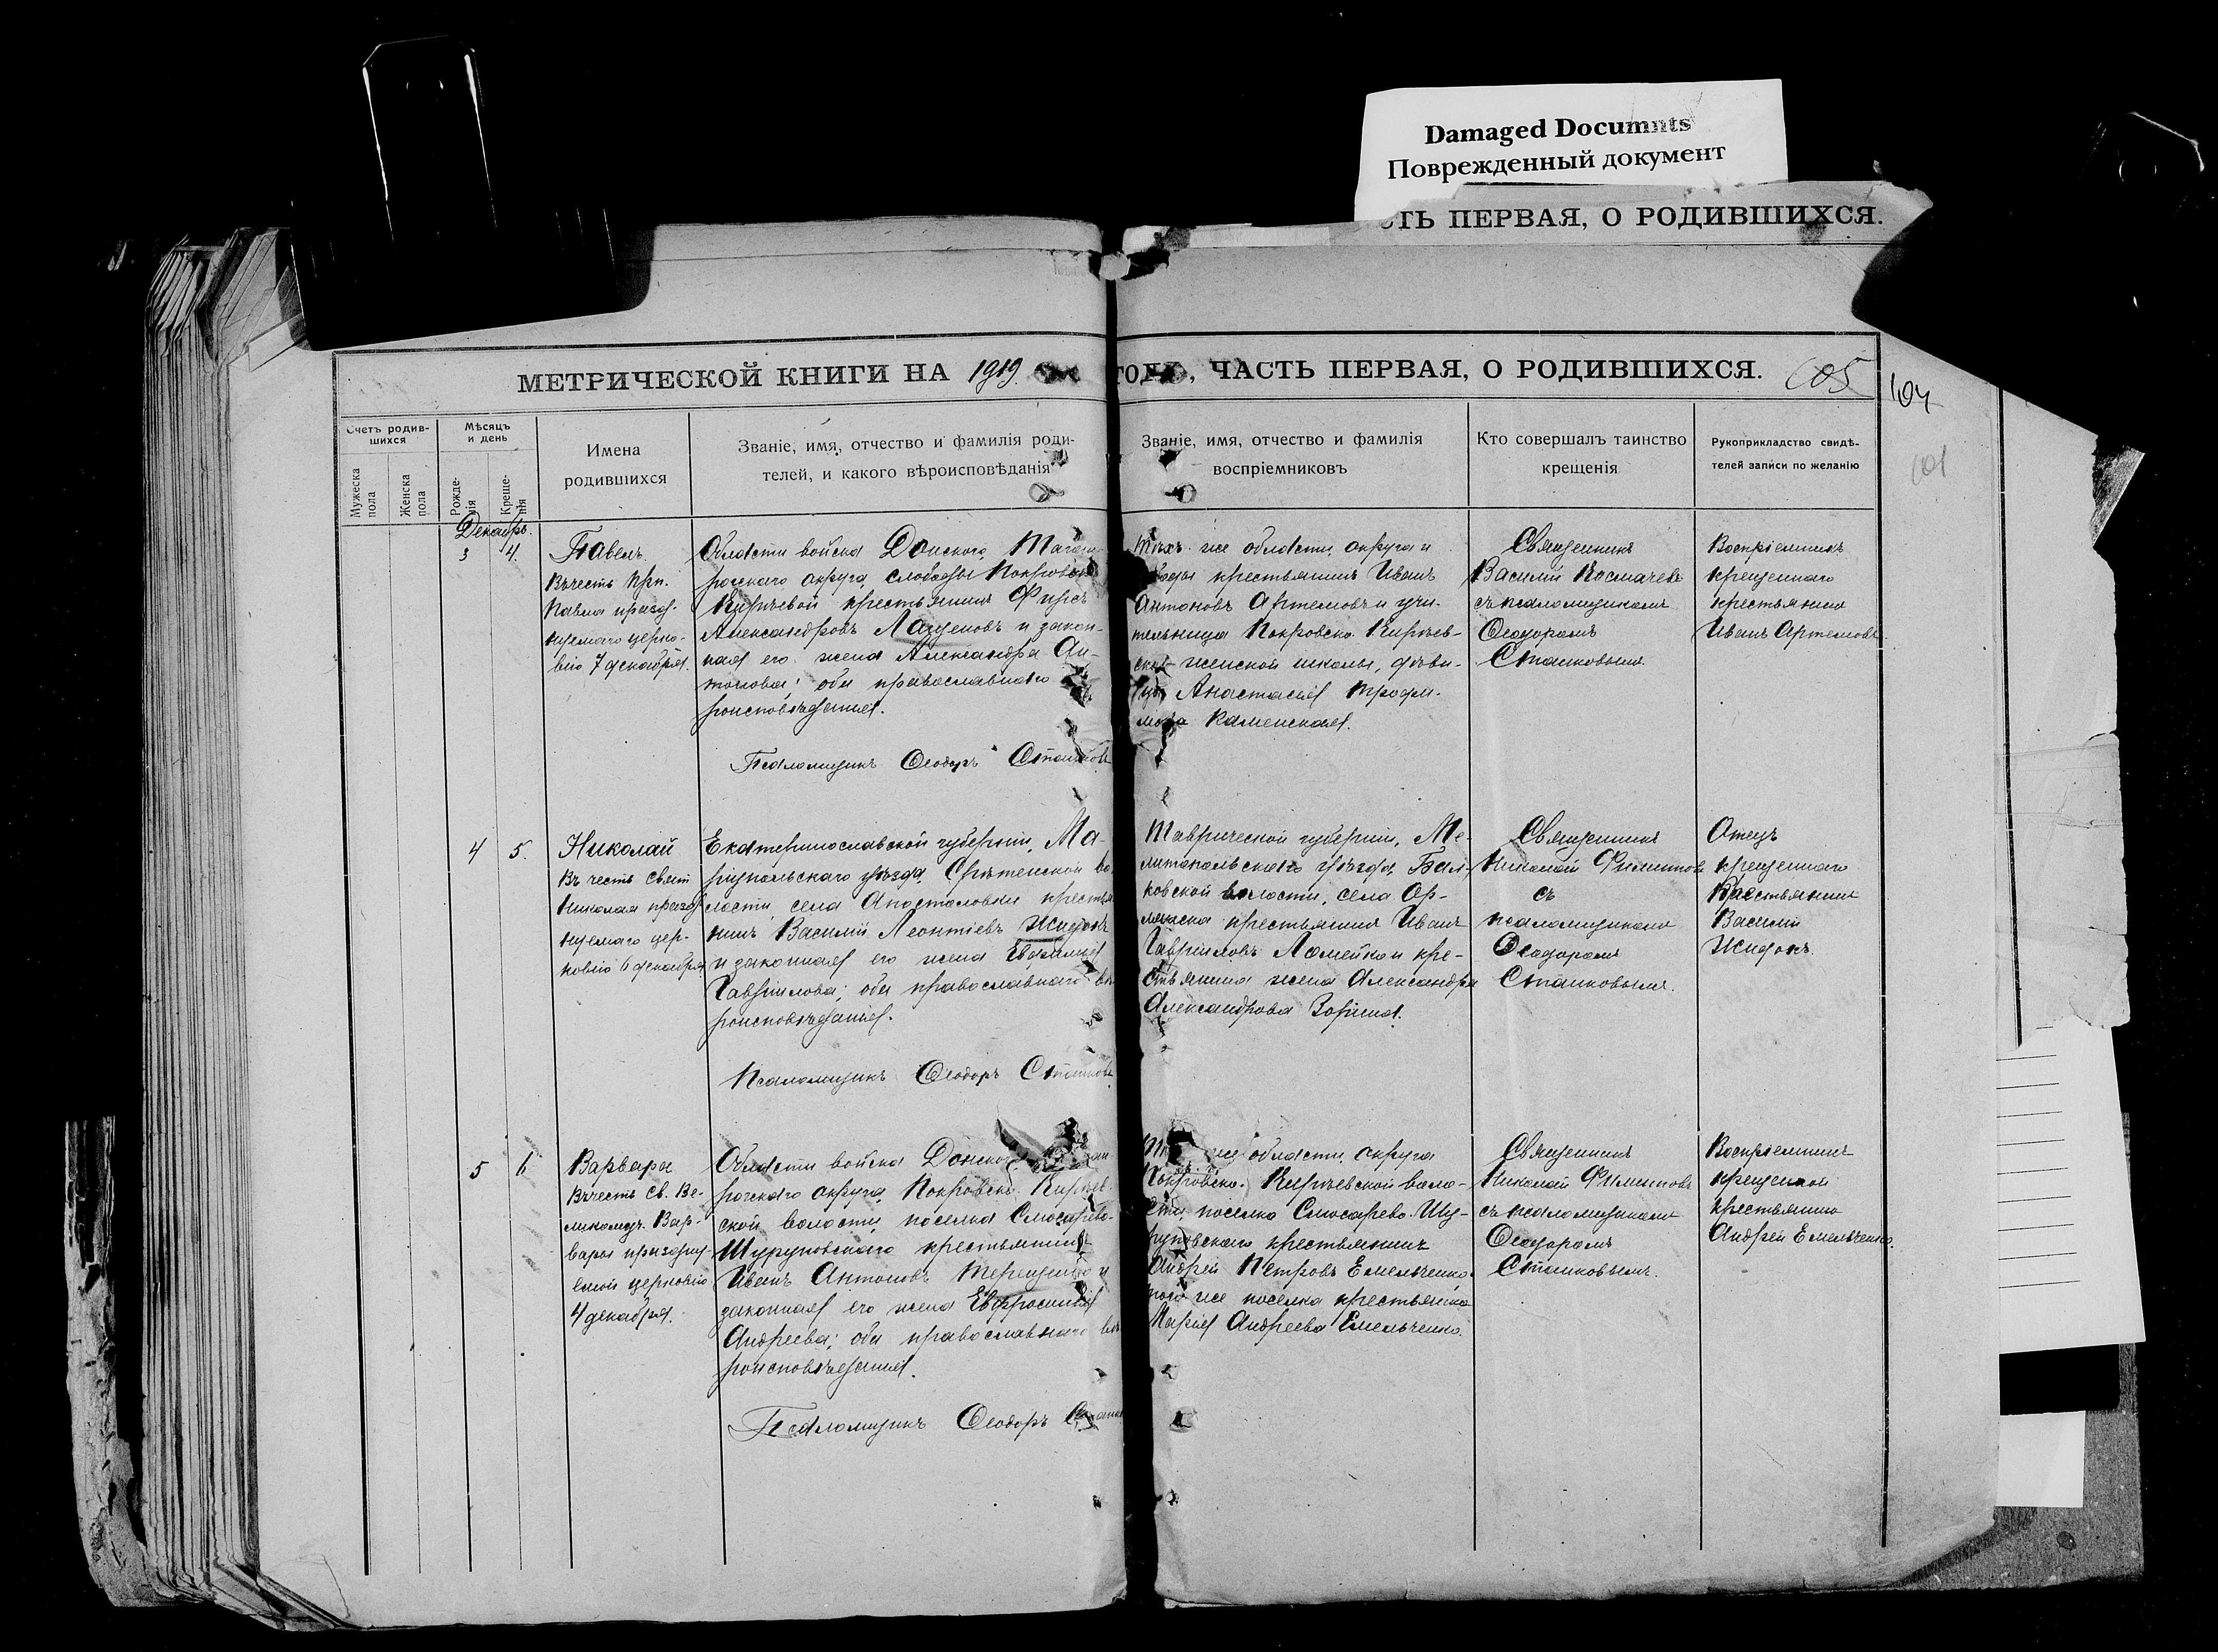 Damaged Documents
Поврежденный документ
СТЬ ПЕРВАЯ, О РОДИВШИХСЯ.
МЕТРИЧЕСКОЙ КНИГИ НА 1919
ГОДЪ, ЧАСТЬ ПЕРВАЯ, О РОДИВШИХСЯ.
605
604
Счетъ родив-
шихся
Мужеска
пола
Женска
пола
Мѣсяцъ
и день
Рожде-
нія
Креще-
нія
Имена
родившихся
Званіе, имя, отчество и фамилія роди-
телей, и какого вѣроисповѣданія
Званіе, имя, отчество и фамилія
воспріемниковъ
Кто совершалъ таинство
крещенія
Рукоприкладство свидѣ-
телей записи по желанію
Декабрь.
3 4.
Павелъ.
Въ честь прп.
Павла празд-
нуемаго церко-
вію 7 декабря.
Области войска Донского, Таган-
рогскаго округа, слободы Покровско-
Кирѣевой крестьянинъ Фирсъ
Александровъ Лазуеновъ и закон-
ная его жена Александра Ан-
тонова; оба православнаго
роисповѣданія.
Псаломщикъ Ѳеодоръ Сташковъ
Тѣхъ же области, округа и
слободы крестьянинъ Иванъ
Антоновъ Артемовъ и учи-
тельница Покровско-Кирѣев-
ской женской школы, дѣви-
ца Анастасія Трофи-
мова Каменская.
Священникъ
Василій Космачевъ
съ псаломщикомъ
Ѳеодоромъ
Сташковымъ.
Воспріемникъ
крещеннаго
крестьянинъ
Иванъ Артемовъ.
4 5.
Николай
Въ честь Свят.
Николая празд-
нуемаго цер-
ковію 6 декабря
Екатеринославской губерніи, Ма-
ріупольскаго уѣзда, Срѣтенской во-
лости, села Апостоловки крестья-
нинъ Василій Леонтіевъ Жидокъ
и законная его жена Евфимія
Гавріилова; оба православнаго вѣ-
роисповѣданія.
Псаломщикъ Ѳеодоръ Сташковъ
Таврической губерніи, Ме-
литопольскаго уѣзда, Бал-
ковской волости, села Ор-
лянска крестьянинъ Иванъ
Гавріиловъ Ломейко и кре-
стьянина жена Александра
Александрова Зорина.
Священникъ
Николай Филиповъ
съ
псаломщикомъ
Ѳеодоромъ
Сташковымъ.
Отецъ
крещеннаго
Крестьянинъ
Василій
Жидокъ.
5 6
Варвара
Въ честь Св. Ве-
ликомуч. Вар-
вары празднуу-
емой церковію
4 декабря.
Области войска Донского, Таган-
рогскаго округа, Покровско-Кирѣев-
ской волости, поселка Слюсарево-
Шурупоскаго крестьянинъ
Иванъ Антоновъ Терещенко и
законная его жена Евфросинія
Андреева; оба православнаго вѣ-
роисповѣданія.
Псаломщикъ Ѳеодоръ
же области, округа
Покровско-Кирѣевской воло-
сти, поселка Слюсарево-Шу-
руповскаго крестьянинъ
Андрей Петровъ Емельченко
того же поселка крестьянка
Марія Андреева Емельченко.
Священникъ
Николай Филиповъ
съ псаломщикомъ
Ѳеодоромъ
Сташковымъ.
Воспріемникъ
крещенной
крестьянинъ
Андрей Емельченко.